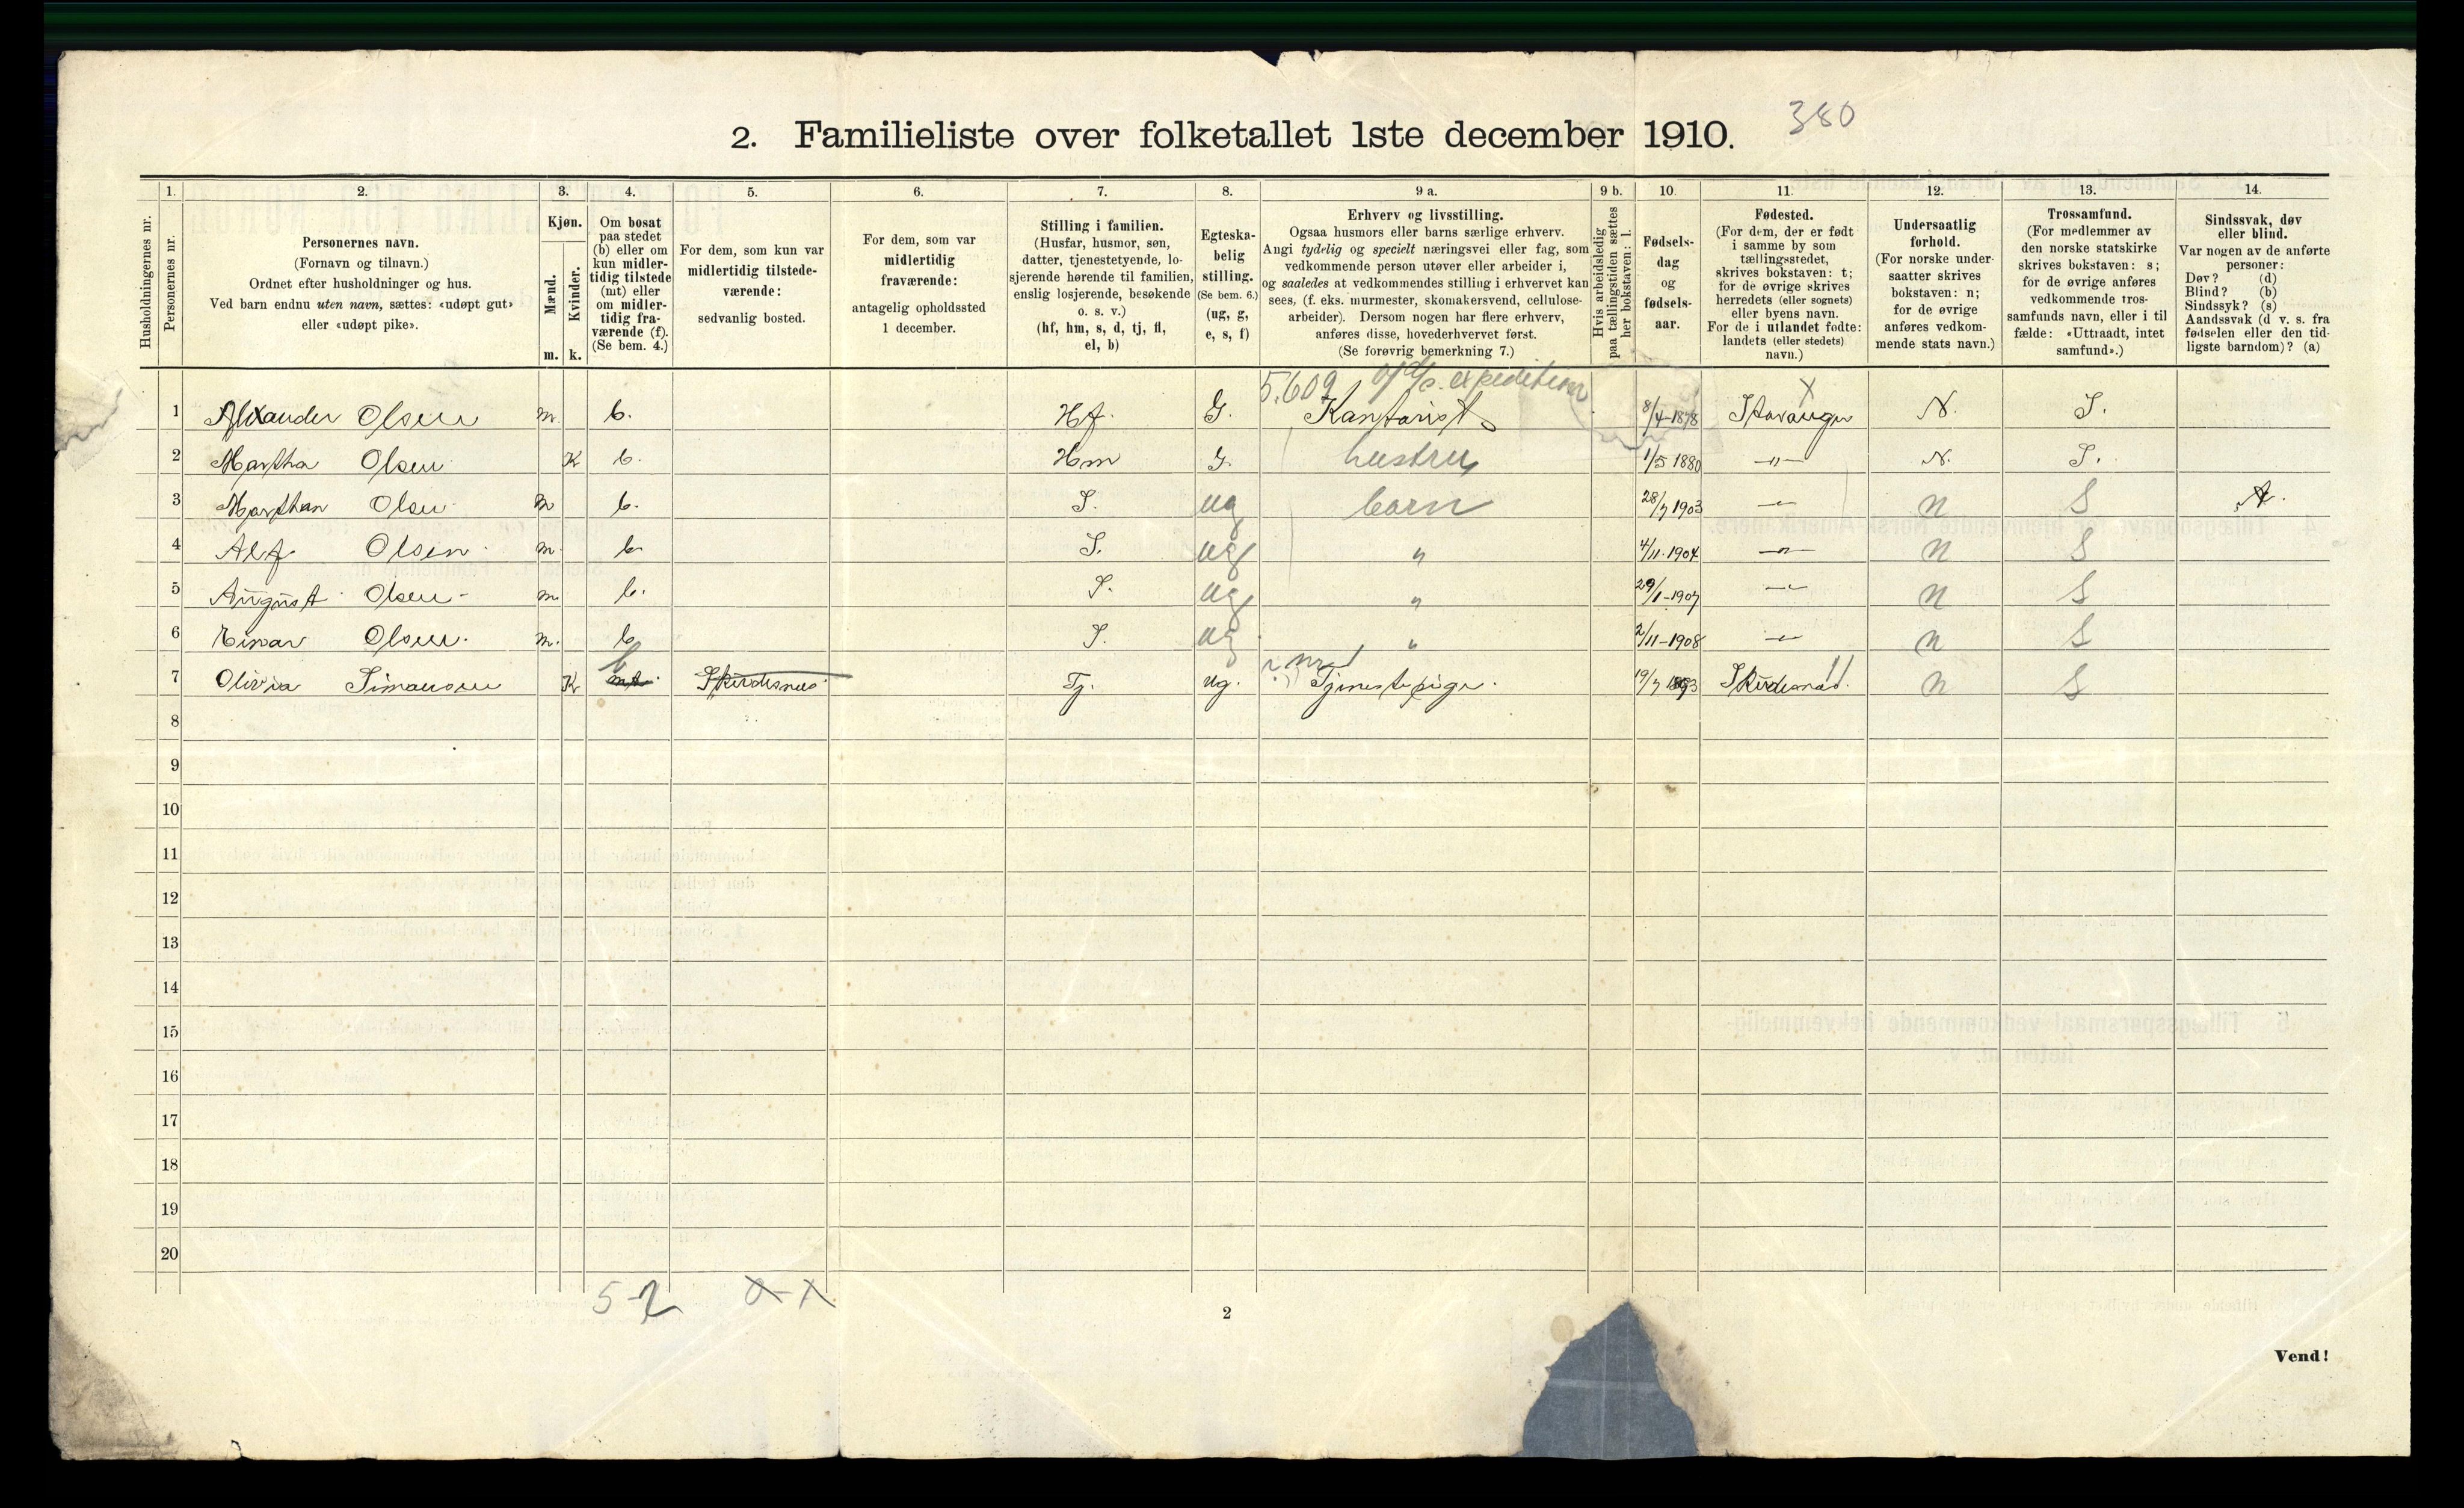 2. Familieliste over folketallet 1ste december 1910. 380
Husholdningernes nr.
1. Personernes nr.
2. Personernes navn.
(Fornavn og tilnavn.)
Ordnet efter husholdninger og hus.
Ved barn endnu uten navn, sættes: «udøpt gut»
eller «udøpt pike».
3. Kjøn.
Mænd. m.
Kvinder. k.
4. Om bosat
paa stedet
(b) eller om
kun midler-
tidig tilstede
(mt) eller
om midler-
tidig fra-
værende (f).
(Se bem. 4.)
5. For dem, som kun var
midlertidig tilstede-
værende:
sedvanlig bosted.
6. For dem, som var
midlertidig
fraværende:
antagelig opholdssted
1 december.
7. Stilling i familien.
(Husfar, husmor, søn,
datter, tjenestetyende, lo-
sjerende hørende til familien,
enslig losjerende, besøkende
o. s. v.)
(hf, hm, s, d, tj, fl,
el, b)
8. Egteska-
belig
stilling.
(Se bem. 6.)
(ug, g,
e, s, f)
9 a. Erhverv og livsstilling.
Ogsaa husmors eller barns særlige erhverv.
Angi tydelig og specielt næringsvei eller fag, som
vedkommende person utøver eller arbeider i,
og saaledes at vedkommendes stilling i erhvervet kan
sees, (f. eks. murmester, skomakersvend, cellulose-
arbeider). Dersom nogen har flere erhverv,
anføres disse, hovederhvervet først.
(Se forøvrig bemerkning 7.)
9 b. Hvis arbeidsledig
paa tællingstiden sættes
her bokstaven: l.
10. Fødsels-
dag
og
fødsels-
aar.
11. Fødested.
(For dem, der er født
i samme by som
tællingsstedet,
skrives bokstaven: t;
for de øvrige skrives
herredets (eller sognets)
eller byens navn.
For de i utlandet fødte:
landets (eller stedets)
navn.)
12. Undersaatlig
forhold.
(For norske under-
saatter skrives
bokstaven: n;
for de øvrige
anføres vedkom-
mende stats navn.)
13. Trossamfund.
(For medlemmer av
den norske statskirke
skrives bokstaven: s;
for de øvrige anføres
vedkommende tros-
samfunds navn, eller i til
fælde: «Uttraadt, intet
samfund».)
14. Sindssvak, døv
eller blind.
Var nogen av de anførte
personer:
Døv? (d)
Blind? (b)
Sindssyk? (s)
Aandssvak (d. v. s. fra
fødselen eller den tid-
ligste barndom)? (a)
5.609 expedition
1 Alexander Olsen m. b. Hf. G. Kontorist 8/4-1878 Stavanger N. S.
2 Martha Olsen K b. Hm G. hustru 1/5 1880 —"— N. S.
3 Marthon Olsen m b. S. ug barn 28/7 1903 —"— n S A.
4 Alf Olsen m. b S. ug " 4/11-1904 —"— n S
5 August Olsen m. b. S. ug " 29/1-1907 —"— n S
6 Einar Olsen. m. b S. ug " 2/11-1908 —"— n S
b
7 Olivia Simonsen K mt. Skudesnes Tj. ug. Tjenestepige. 19/7 1893 Skudesnes. n S
8
9
10
11
12
13
14
15
16
17
18
19
20
5-2
2
Vend!